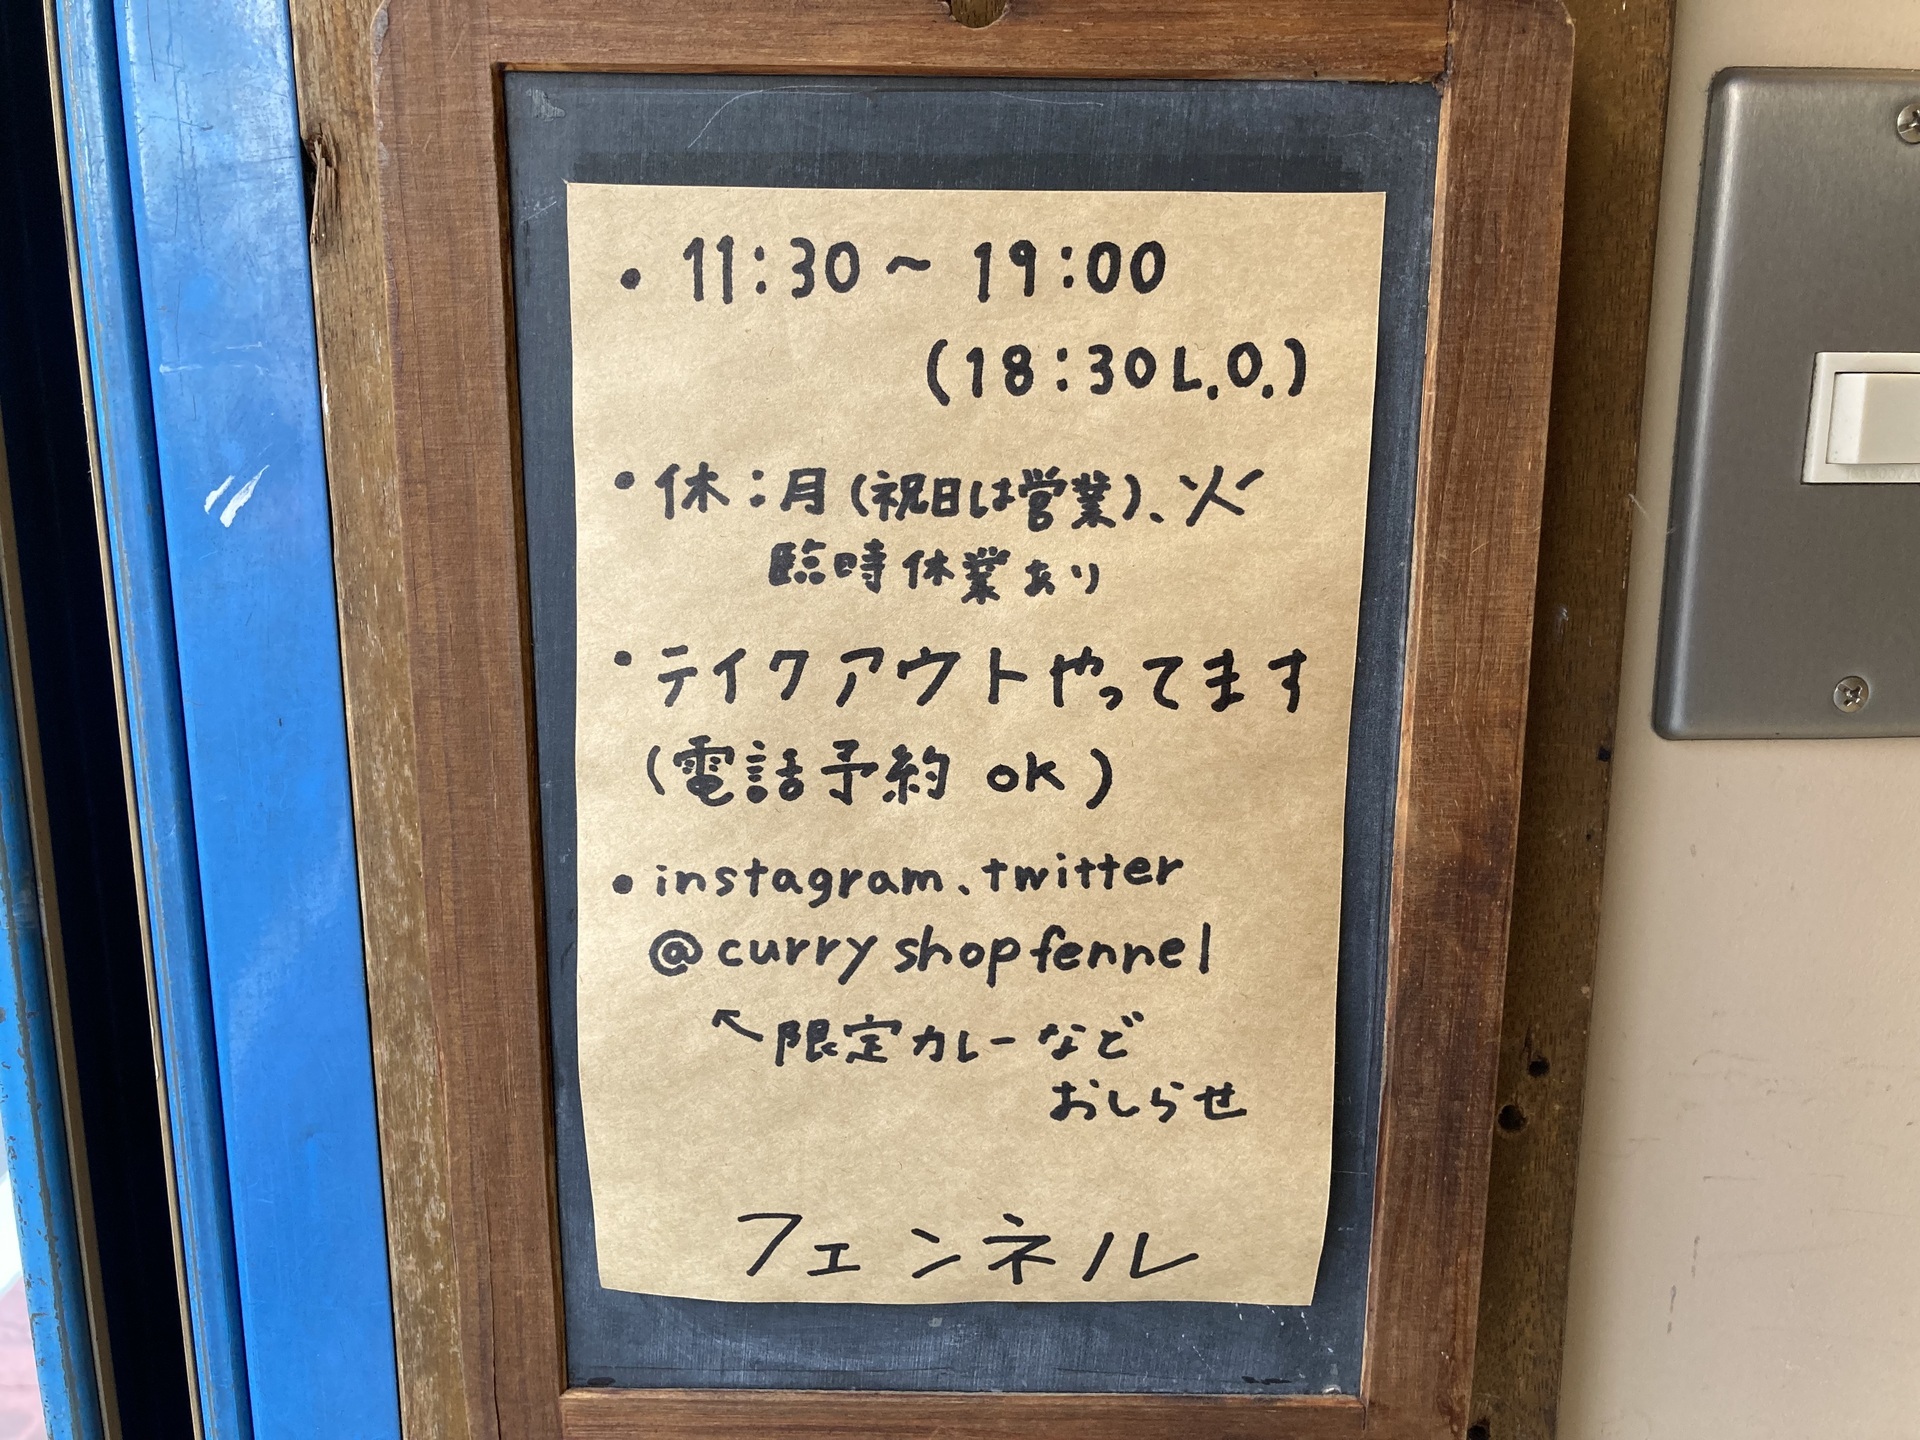 • 11:30 ~ 19:00
(18:30 L.O.)
• 休:月(祝日は営業)、火
臨時休業あり
• テイクアウトやってます
(電話予約 OK)
• instagram、twitter
@curryshopfennel
↖限定カレーなど
おしらせ
フェンネル